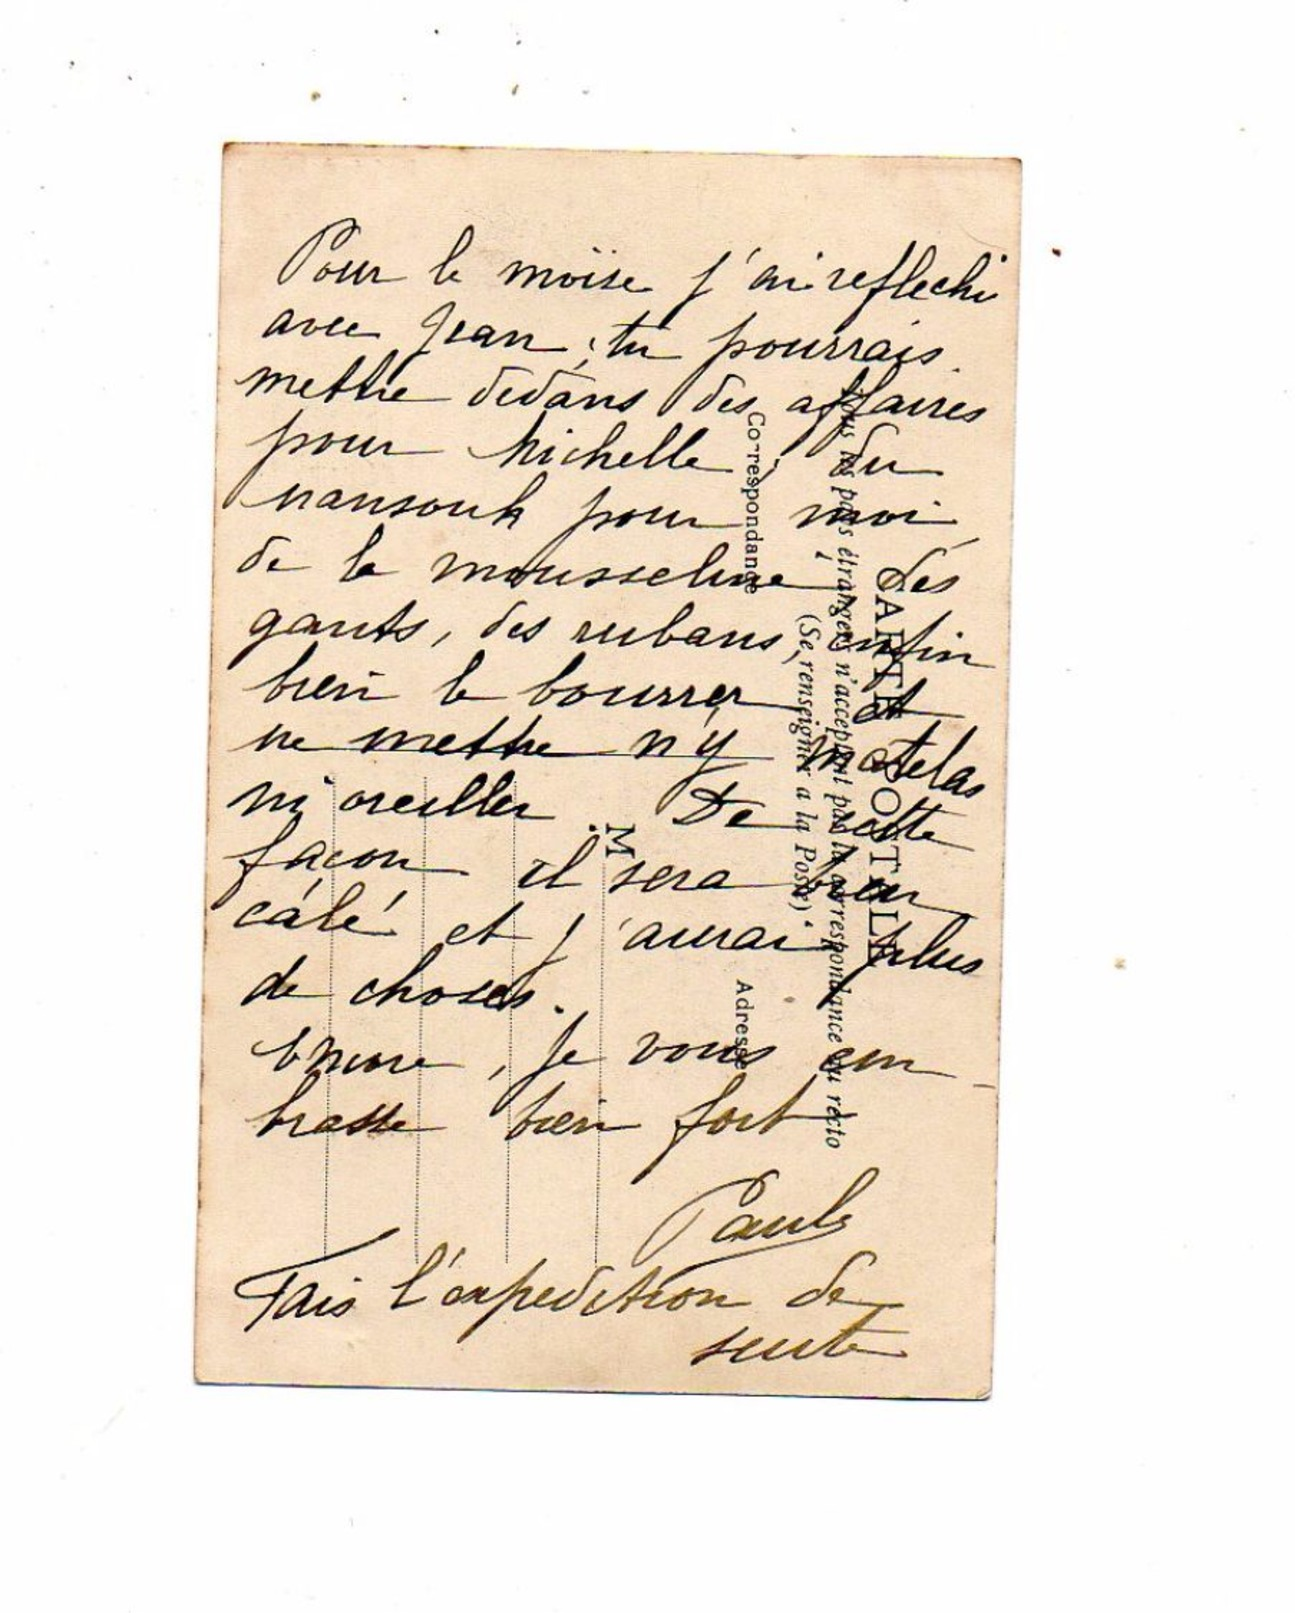 Pour le moïse j'ai reflechi
avec Jean, tu pourrais
mettre dedans des affaires
pour Michelle, du
nansouk pour moi,
de la mousseline des
gants, des rubans, enfin
bien le bourrer et
ne mettre n'y matelas
ni oreiller. De cette
façon il sera bien
cálé et j'aurai plus
de choses.
Encore, je vous em-
brasse bien fort
Paule
Fais l'expedition de
suite
CARTE POSTALE
Tous les pays étrangers n'acceptent pas la correspondance au recto
(Se renseigner a la Poste)
Correspondance
Adresse
M